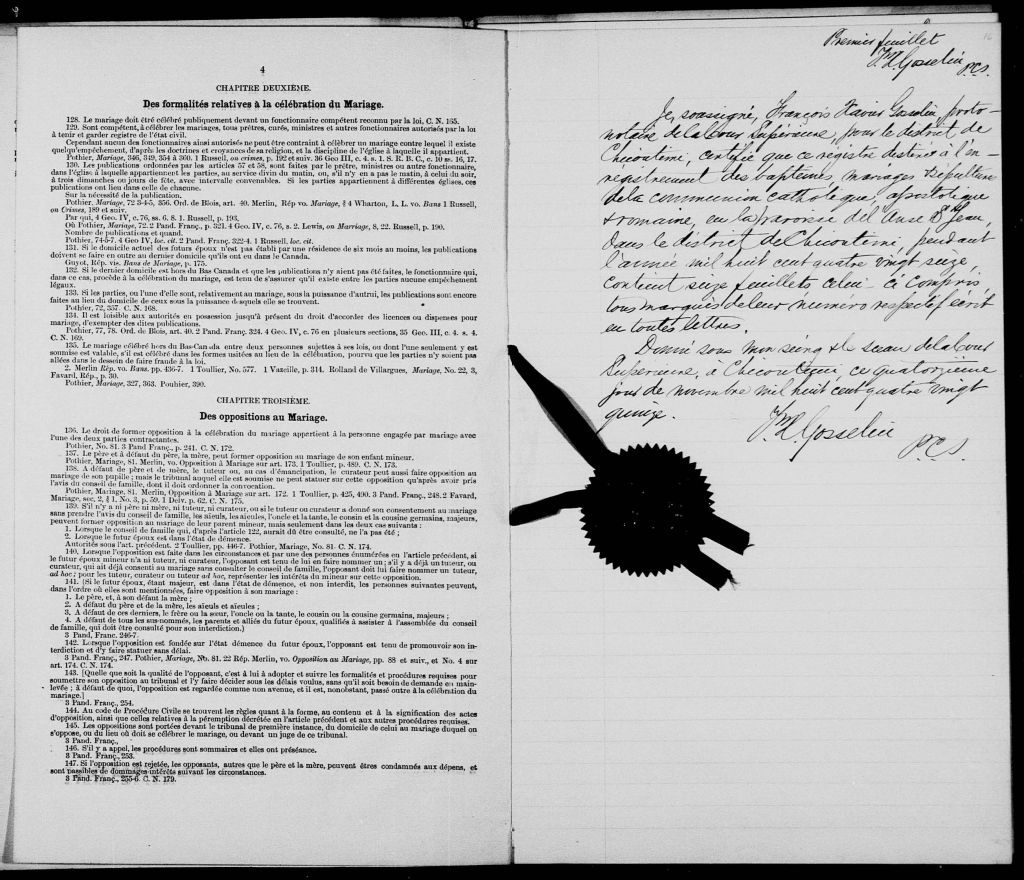 4
CHAPITRE DEUXIÈME.
Des formalités relatives à la célébration du Mariage.
128. Le mariage doit être célébré publiquement devant un fonctionnaire compétent reconnu par la loi, C. N. 165.
129. Sont compétents, à célébrer les mariages, tous prêtres, curés, ministres et autres fonctionnaires autorisés par la loi
à tenir et garder registre de l'état civil.
Cependant aucun des fonctionnaires ainsi autorisés ne peut être contraint à célébrer un mariage contre lequel il existe
quelqu'empêchement, d'après les doctrines et croyances de sa religion, et la discipline de l'église à laquelle il appartient.
Pothier, Mariage, 346, 349, 354 à 360. 1 Russell, on crimes, p. 192 et suiv. 36 Geo III, c. 4. s. 1. S. R. B. C., c. 10 s. 16, 17.
130. Les publications ordonnées par les articles 57 et 58, sont faites par le prêtre, ministre ou autre fonctionnaire,
dans l'église à laquelle appartiennent les parties, au service divin du matin, ou, s'il n'y en a pas le matin, à celui du soir,
à trois dimanches ou jours de fête, avec intervalle convenables. Si les parties appartiennent à différentes églises, ces
publications ont lieu dans celle de chacune.
Sur la nécessité de la publication.
Pothier, Mariage, 72 3-4-5, 356. Ord. de Blois, art. 40. Merlin, Rép vo. Mariage, § 4 Wharton, L. L. vo. Bans 1 Russell,
on Crimes, 189 et suiv.
Par qui, 4 Geo. IV, c. 76, ss. 6. 8. 1. Russell, p. 193.
Où Pothier, Mariage, 72. 2 Pand. Franç., p. 321. 4 Geo. IV, c. 76, s. 2. Lewis, on Marriage, 8, 22. Russell, p. 190.
Nombre de publications et quand.
Pothier, 74-5-7. 4 Geo IV, loc. cit. 2 Pand. Franç. 322-4. 1 Russell, loc. cit.
131. Si le domicile actuel des futurs époux n'est pas établi par une résidence de six mois au moins, les publications
doivent se faire en outre au dernier domicile qu'ils ont eu dans le Canada.
Guyot, Rép. vis. Bans de Mariage, p. 175.
132. Si le dernier domicile est hors du Bas Canada et que les publications n'y aient pas été faites, le fonctionnaire qui,
dans ce cas, procède à la célébration du mariage, est tenu de s'assurer qu'il existe entre les parties aucune empêchement
légaux.
133. Si les parties, ou l'une d'elle sont, relativement au mariage, sous la puissance d'autrui, les publications sont encore
faites au lieu du domicile de ceux sous la puissance desquels elles se trouvent.
Pothier, 72, 357. C. N. 168.
134. Il est loisible aux autorités en possession jusqu'à présent du droit d'accorder des licences ou dispenses pour
mariage, d'exempter des dites publications.
Pothier, 77, 78. Ord. de Blois, art. 40. 2 Pand. Franç. 324. 4 Geo. IV, c. 76 en plusieurs sections, 35 Geo. III, c. 4. s. 4.
C. N. 169.
135. Le mariage célébré hors du Bas-Canada entre deux personnes sujettes à ses lois, ou dont l'une seulement y est
soumise est valable, s'il est célébré dans les formes usitées au lieu de la célébration, pourvu que les parties n'y soient pas
allées dans le dessein de faire fraude à la loi.
2. Merlin Rép. vo. Bans. pp. 436-7. 1 Toullier, No. 577. 1 Vazeille, p. 314. Rolland de Villargues, Mariage, No. 22, 3,
Favard, Rép., p. 30.
Pothier, Mariage, 327, 363. Pouhier, 390.
CHAPITRE TROISIÈME.
Des oppositions au Mariage.
136. Le droit de former opposition à la célébration du mariage appartient à la personne engagée par mariage avec
l'une des deux parties contractantes.
Pothier, No. 81. 3 Pand Franç., p. 241. C. N. 172.
137. Le père et à défaut du père, la mère, peut former opposition au mariage de son enfant mineur.
Pothier, Mariage, 81. Merlin, vo. Opposition à Mariage sur art. 173. 1 Toullier, p. 489. C. N. 173.
138. A défaut de père et de mère, le tuteur ou, au cas d'émancipation, le curateur peut aussi faire opposition au
mariage de son pupille; mais le tribunal auquel elle est soumise ne peut statuer sur cette opposition qu'après avoir pris
l'avis du conseil de famille, dont il doit ordonner la convocation.
Pothier, Mariage, 81. Merlin, Opposition à Mariage sur art. 172. 1 Toullier, p. 425, 490. 3 Pand. Franç., 248. 2 Favard,
Mariage, sec. 2, § 1, No. 3, p. 59. 1 Delv. p. 62. C. N. 175.
139. S'il n'y a ni père ni mère, ni tuteur, ni curateur, ou si le tuteur ou curateur a donné son consentement au mariage
sans prendre l'avis du conseil de famille, les aïeuls, les aïeules, l'oncle et la tante, le consin et la cousine germains, majeurs,
peuvent former opposition au mariage de leur parent mineur, mais seulement dans les deux cas suivants:
1. Lorsque le conseil de famille qui, d'après l'article 122, aurait dû être consulté, ne l'a pas été;
2. Lorsque le futur époux est dans l'état de démence.
Autorités sous l'art. précédent. 2 Toullier, pp. 446-7. Pothier, Mariage, No. 81. C. N. 174.
140. Lorsque l'opposition est faite dans les circonstances et par une des personnes énumérées en l'article précédent, si
le futur époux mineur n'a ni tuteur, ni curateur, l'opposant est tenu de lui en faire nommer un; s'il y a déjà un tuteur, ou
curateur, qui ait déjà consenti au mariage sans consulter le conseil de famille, l'opposant doit lui faire nommer un tuteur,
ad hoc; pour les tuteur, curateur ou tuteur ad hoc, représenter les intérêts du mineur sur cette opposition.
141. (Si le futur époux, étant majeur, est dans l'état de démence, et non interdit, les personnes suivantes peuvent,
dans l'ordre où elles sont mentionnées, faire opposition à son mariage:
1. Le père, et, à son défaut la mère;
2. A défaut du père et de la mère, les aïeuls et aïeules;
3. A défaut de ces derniers, le frère ou la sœur, l'oncle ou la tante, le cousin ou la cousine germains, majeurs;
4. A défaut de tous les sus-nommés, les parents et alliés du futur époux, qualifiés à assister à l'assemblée du conseil
de famille, qui doit être consulté pour son interdiction.)
3 Pand, Franc. 246-7.
142. Lorsque l'opposition est fondée sur l'état démence du futur époux, l'opposant est tenu de promouvoir son in-
terdiction et d'y faire statuer sans délai.
3 Pand. Franç., 247. Pothier, Mariage, No. 81. 22 Rép. Merlin, vo. Opposition au Mariage, pp. 88 et suiv., et No. 4 sur
art. 174. C. N. 174.
143. [Quelque que soit la qualité de l'opposant, c'est à lui à adopter et suivre les formalités et procédures requises pour
soumettre son opposition au tribunal et l'y faire décider sous les délais voulus, sans qu'il soit besoin de demande en main-
levée; à défaut de quoi, l'opposition est regardée comme non avenue, et il est, nonobstant, passé outre à la célébration du
mariage.]
3 Pand. Franç., 254.
144. Au code de Procédure Civile se trouvent les règles quant à la forme, au contenu et à la signification des actes
d'opposition, ainsi que celles relatives à la péremption décrétée en l'article précédent et aux autres procédures requises.
145. Les oppositions sont portées devant le tribunal de première instance, du domicile de celui au mariage duquel on
s'oppose, ou du lieu où doit se célébrer le mariage, ou devant un juge de ce tribunal.
3 Pand. Franç.,
146. S'il y a appel, les procédures sont sommaires et elles ont préséance.
3 Pand. Franç., 253.
147. Si l'opposition est rejetée, les opposants, autres que le père et la mère, peuvent être condamnés aux dépens, et
sont passibles de dommages-intérêts suivant les circonstances.
3 Pand. Franç., 255-6. C. N. 179.
16
Premier feuillet
F. X. Gosselin
P.C.S.
Je, soussigné, François Xavier Gosselin, proto-
notaire de la Cour Supérieure, pour le district de
Chicoutimi, certifie que ce registre destiné à l'en-
registrement des baptêmes mariages & sépultures
de la communion catholique, apostolique
& romaine, en la paroisse de l'Anse St Jean,
dans le district de Chicoutimi, pendant
l'année mil huit cent quatre vingt seize,
contient seize feuillets celui-ci compris,
tous marqués de leur numéro respectif écrit
en toutes lettres.
Donné sous mon seing & le sceau de la Cour
Supérieure, à Chicoutimi, ce quatorzième
jour de novembre mil huit cent quatre vingt
quinze.
F. X. Gosselin
P.C.S.